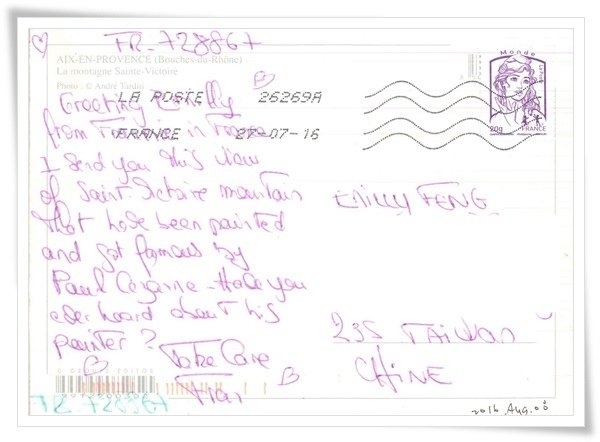 FR-728867
AIX-EN-PROVENCE (Bouches-du-Rhône)
La montagne Sainte-Victoire
Photo : © André Tardini
LA POSTE 26269A
FRANCE 27-07-16
Monde
20g FRANCE
Greeting Emilly
from in
I send you this view
of Saint Victoire mountain
that have been painted
and got famous by
Paul Cézanne - Have you
ever heard about this
painter ?
Take Care
EMILLY FENG
235 TAIWAN
CHINE
2016 Aug. 08